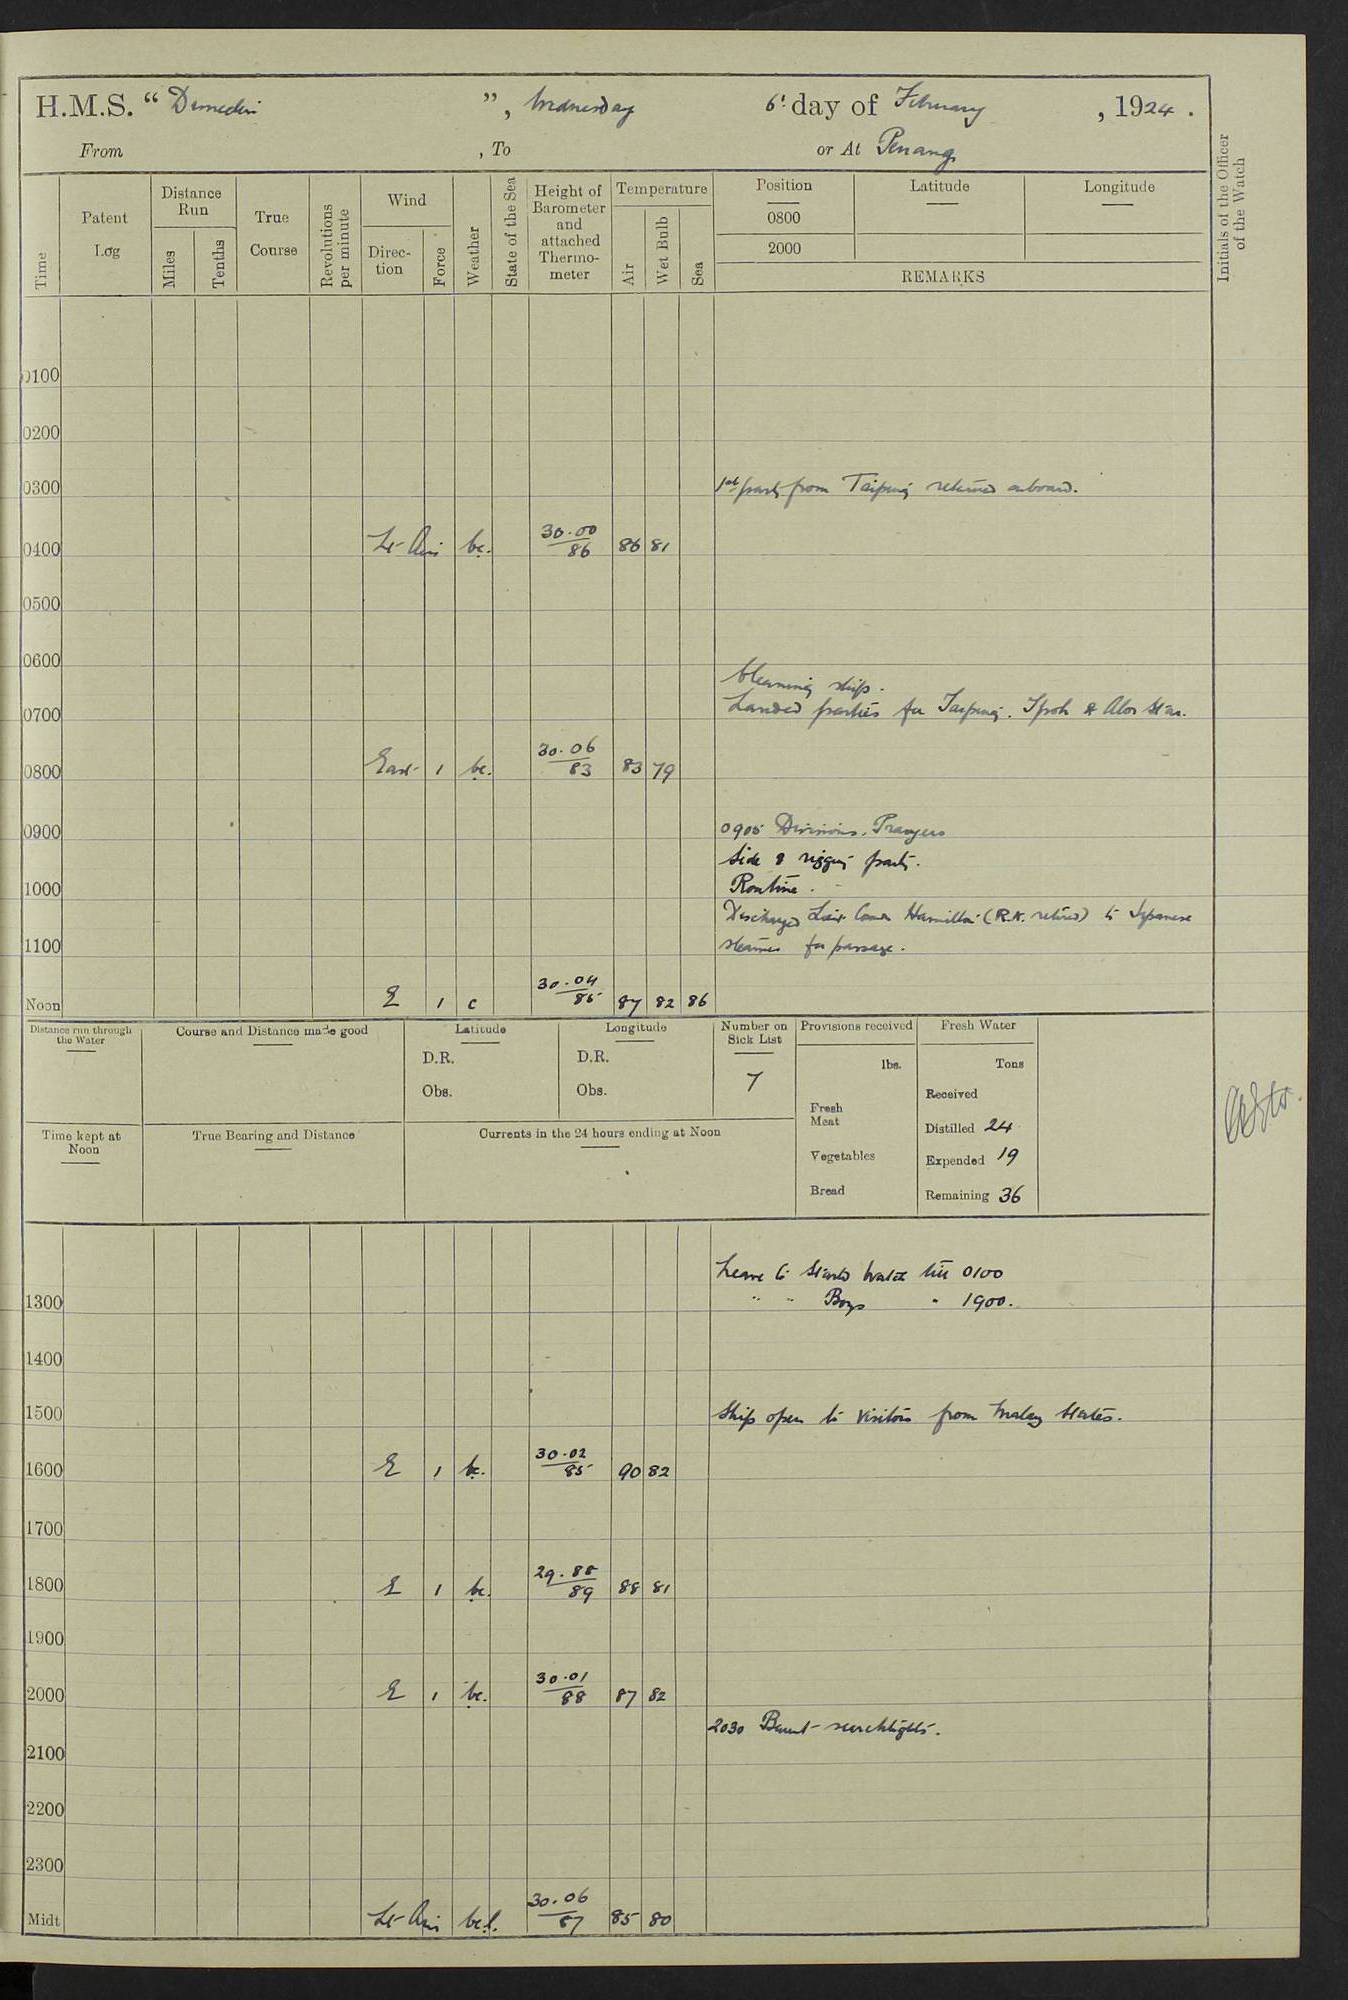 H.M.S. “ Dunedin ”, Wednesday 6th day of February, 1924.
From , To or At Penang
Time
Patent Log
Distance Run
Miles
Tenths
True Course
Revolutions per minute
Wind
Direction
Force
Weather
State of the Sea
Height of Barometer and attached Thermometer
Temperature
Air
Wet Bulb
Sea
Position Latitude Longitude
0800
2000
REMARKS
Initials of the Officer of the Watch
0100
0200
0300 1st party from Taiping returned onboard.
0400 Lt Airs bc. 30.00 86 86 81
0500
0600
Cleaning ship.
0700 Landed parties for Taiping. Ipoh & Alor Star.
0800 East 1 bc. 30.06 83 83 79
0900 0905 Divisions. Prayers
Side & rigging party.
1000 Routine.
Discharged Lieut Comdr Hamilton (R.N. retired) to Japanese
1100 steamer for passage.
Noon E 1 c 30.04 85 87 82 86
Distance run through the Water
Course and Distance made good
Latitude
D.R.
Obs.
Longitude
D.R.
Obs.
Number on Sick List
7
Provisions received
lbs.
Fresh Meat
Vegetables
Bread
Fresh Water
Tons
Received
Distilled 24
Expended 19
Remaining 36
Time kept at Noon
True Bearing and Distance
Currents in the 24 hours ending at Noon
Leave to Starbd Watch till 0100
1300 " " Boys " 1900.
1400
1500 Ship open to visitors from Malay States.
1600 E 1 bc. 30.02 85 90 82
1700
1800 E 1 bc. 29.88 89 88 81
1900
2000 E 1 bc. 30.01 88 87 82
2030 Burnt searchlights.
2100
2200
2300
Midt Lt Airs bc.l. 30.06 87 85 80